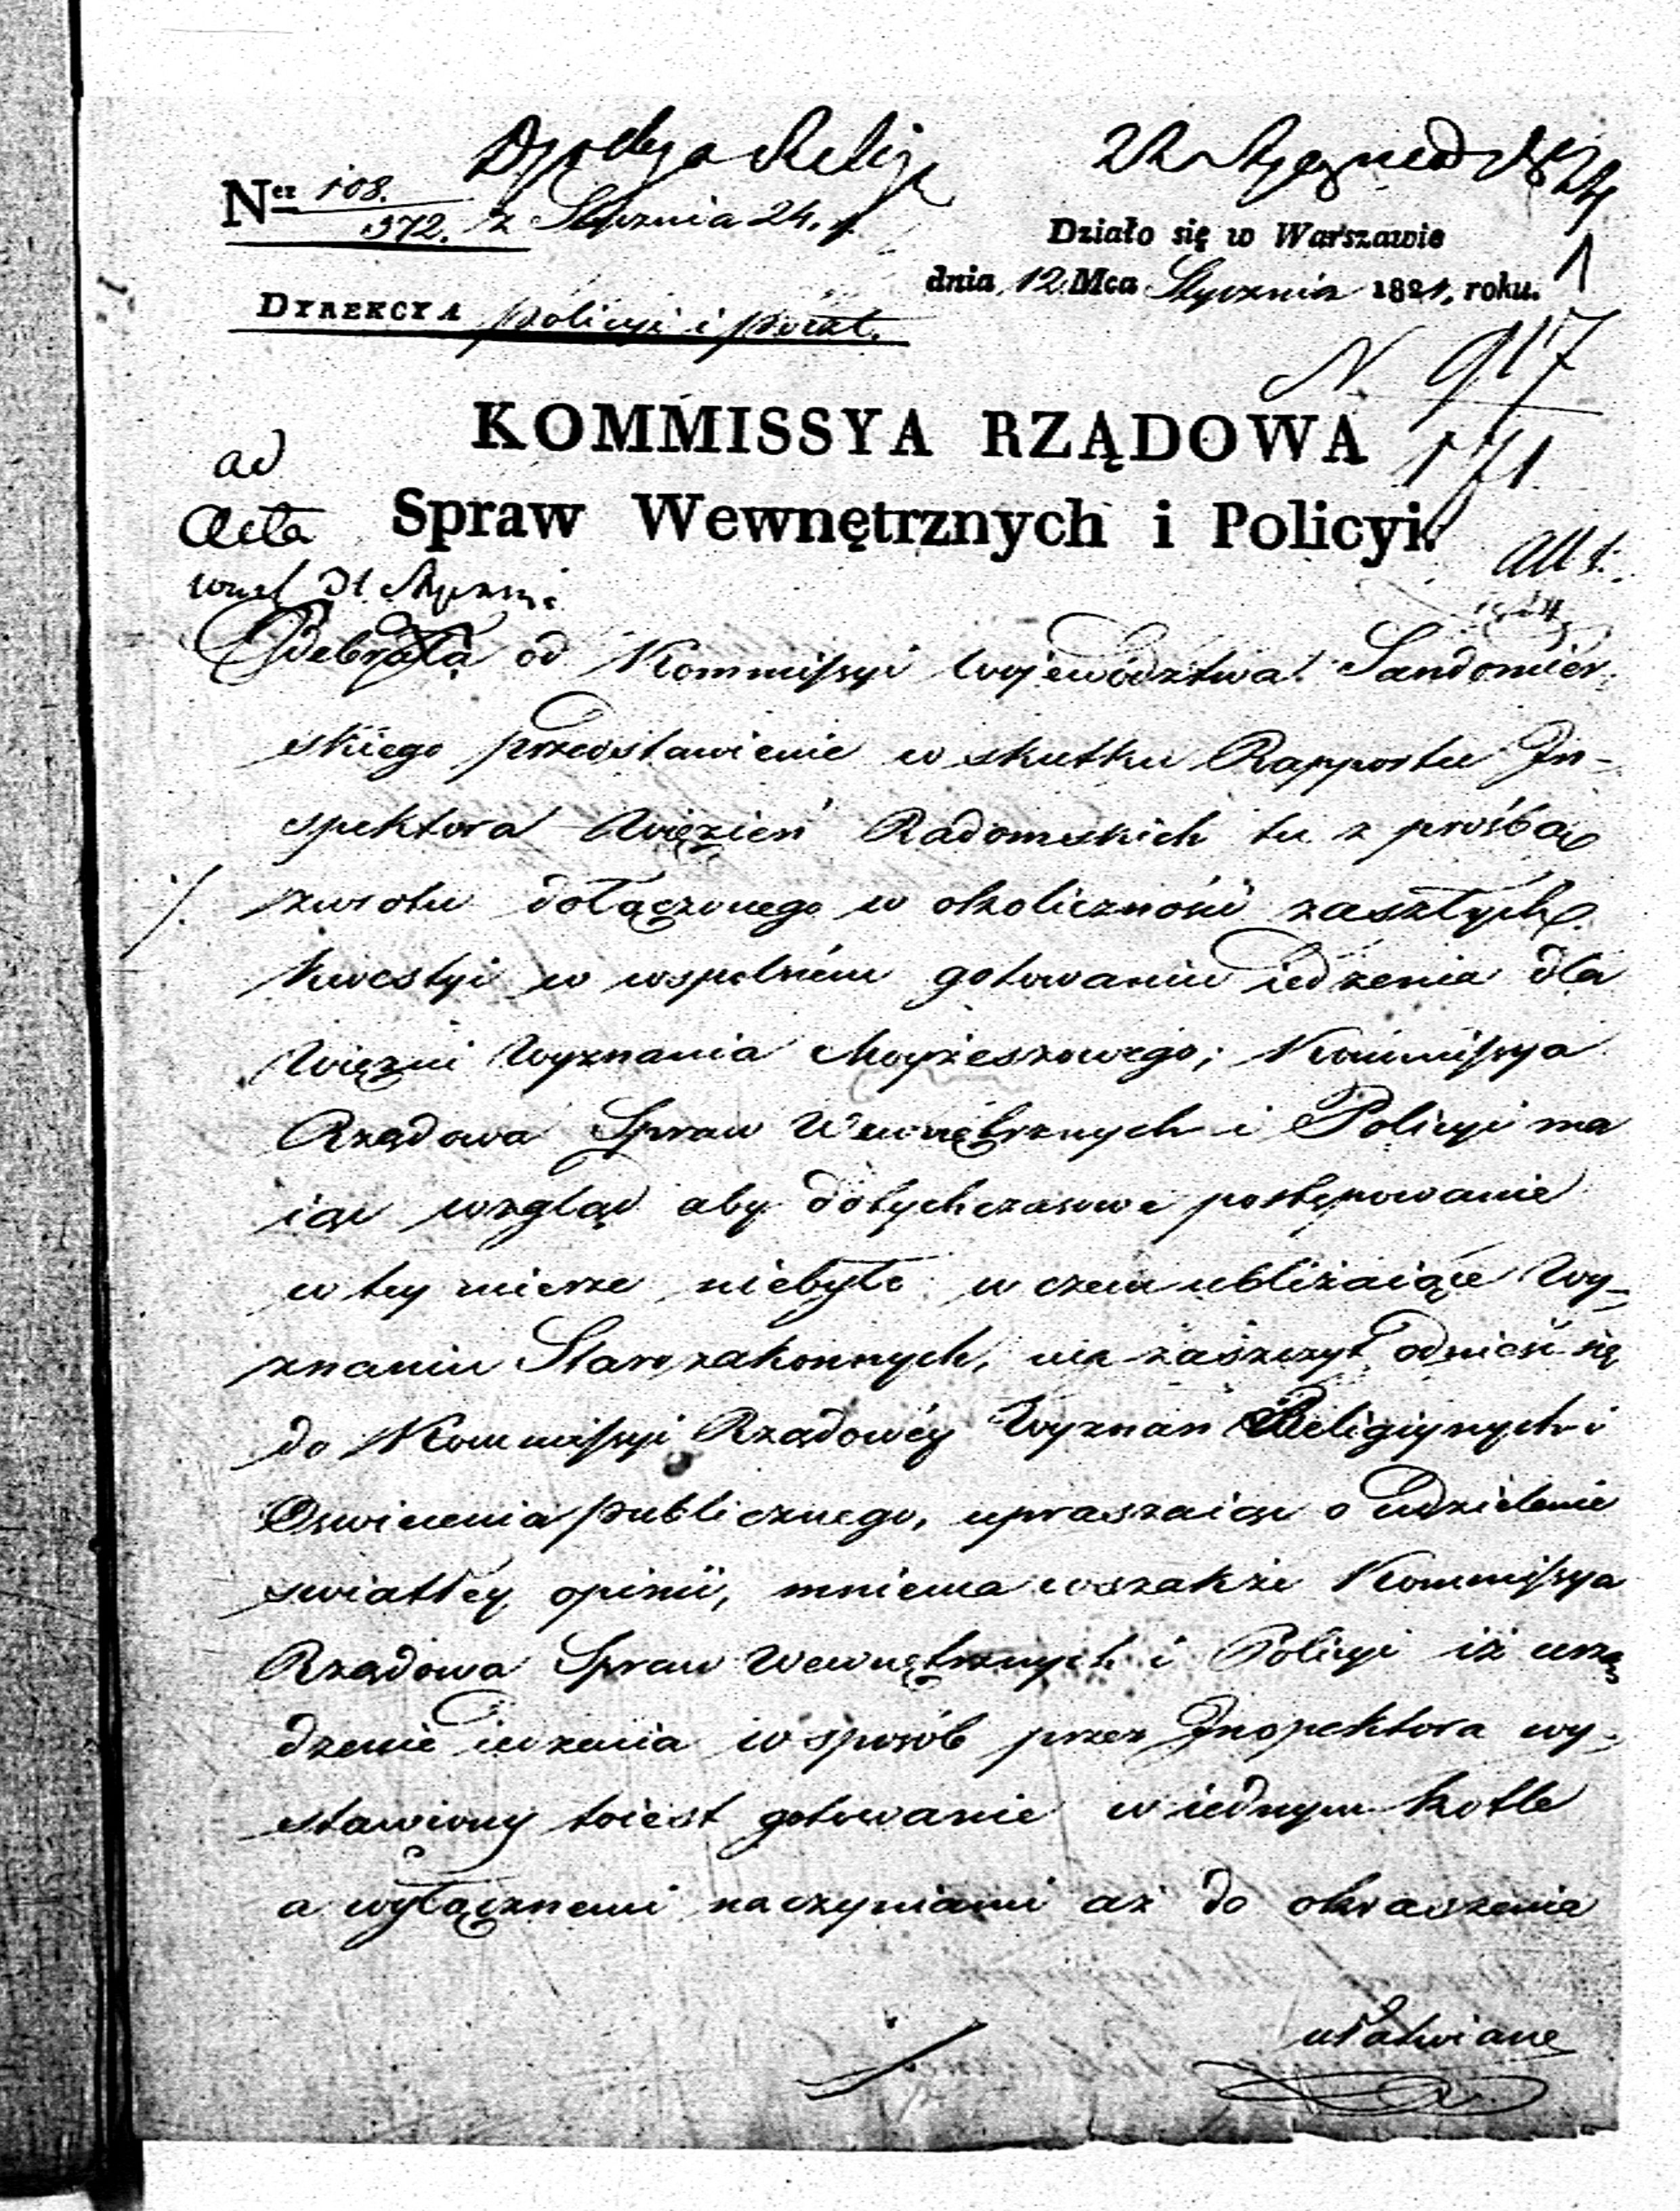 Ner 108.
372. z Stycznia 24. r.
Działo się w Warszawie
dnia 12. Mca Stycznia 1824. roku.
DYREKCYA Policyi i Poczt.
N. 917
171.
KOMMISSYA RZĄDOWA
ad
Acta
Spraw Wewnętrznych i Policyi.
Odebrała od Kommissyi Województwa Sandomier-
skiego przedstawienie w skutku Rapportu In-
spektora Więzień Radomskich tu z prośbą
zwrotu dołączonego w okoliczność zaszłych
kwestyi w wspólném gotowaniu iedzenia dla
Więzni Wyznania Moyżeszowego; Kommissya
Rządowa Spraw Wewnętrznych i Policyi ma
iąc wzgląd aby dotychczasowe postępowanie
w tey mierze niebyło w czem ubliżaiące Wy-
znaniu Starozakonnych, ma zaszczyt odnieść się
do Kommissyi Rządowéy Wyznań Religiynych i
Oswiecenia Publicznego, upraszaiąc o udzielenie
swiatłéy opinii, mniema wszakże Kommissya
Rządowa Spraw Wewnętrznych i Policyi iż urzą
dzenie iedzenia w sposób przez Inspektora wy-
stawiony toiest gotowanie w iednym kotle
a wyłącznemi naczyniami aż do okraszenia
ułatwiane